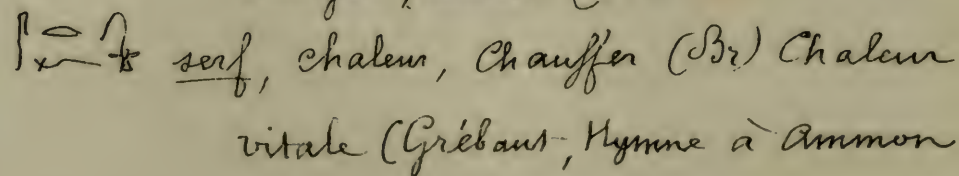 𓋴𓂋𓆑𓊮 serf, chaleur, chauffer (Br) Chaleur
vitale (Grébaut, Hymne à Ammon